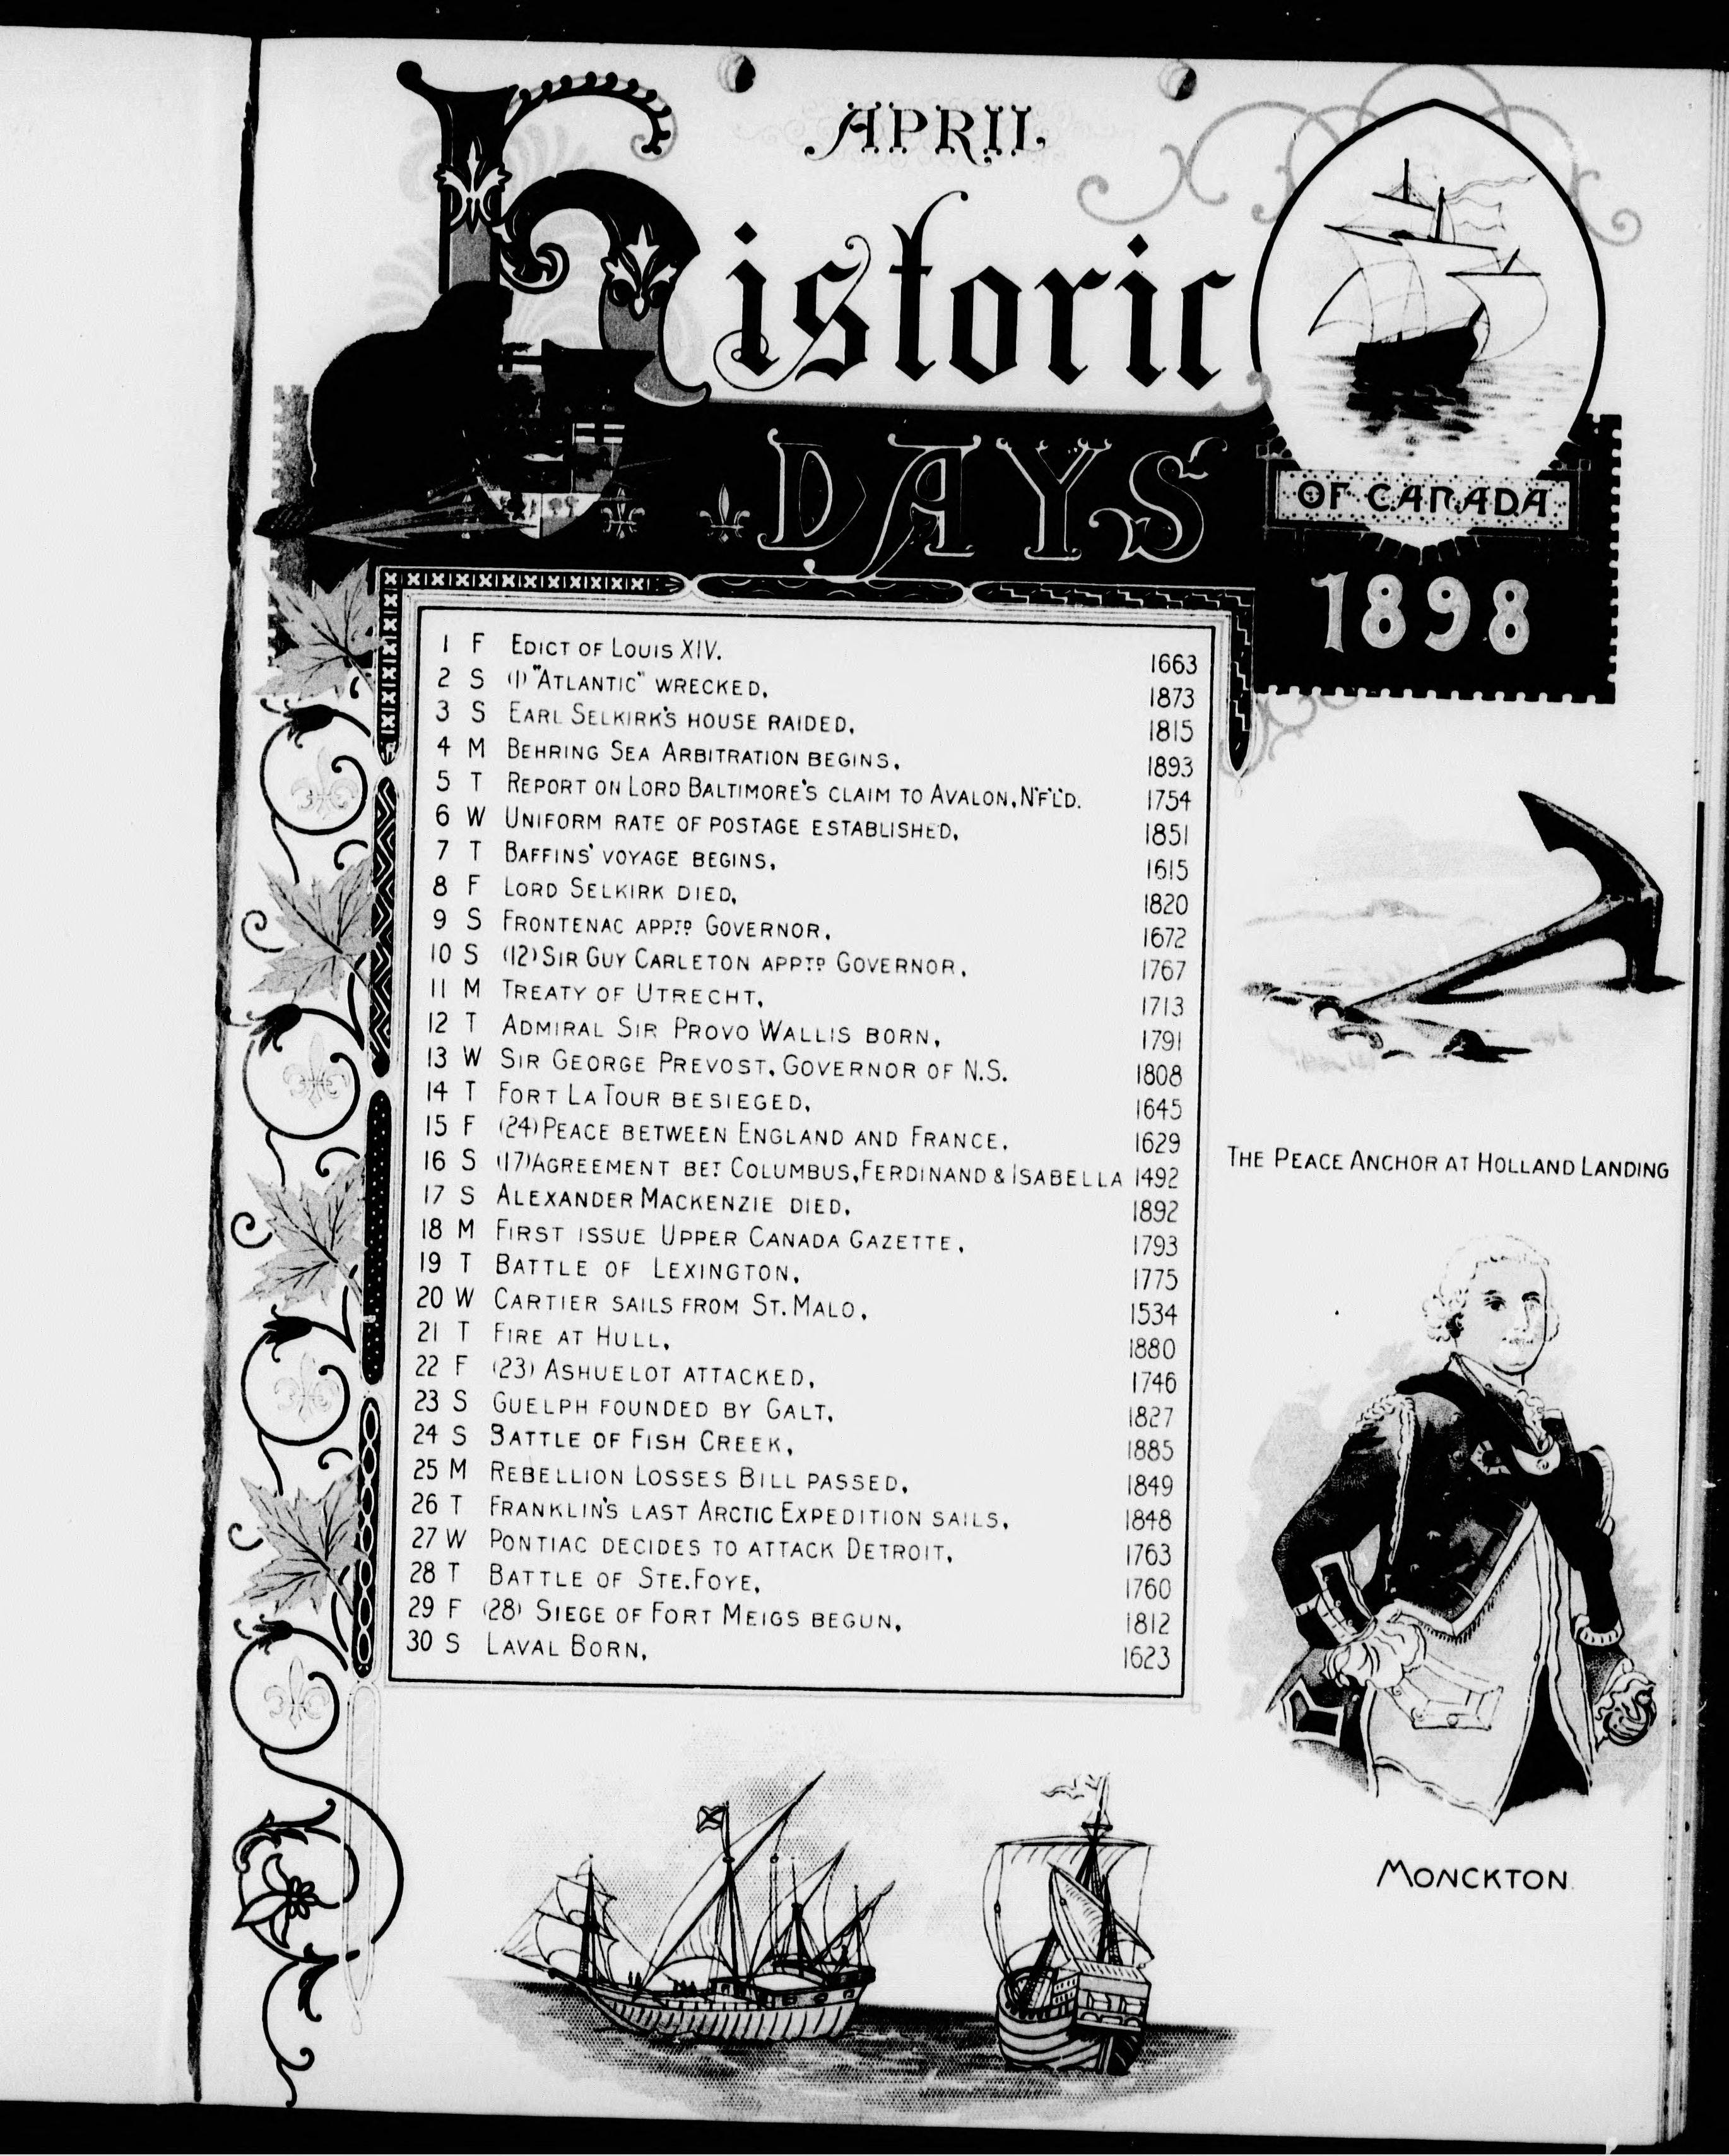 APRIL
Historic
DAYS
OF CANADA
1898
1 F EDICT OF LOUIS XIV. 1663
2 S (1) "ATLANTIC" WRECKED, 1873
3 S EARL SELKIRK'S HOUSE RAIDED, 1815
4 M BEHRING SEA ARBITRATION BEGINS, 1893
5 T REPORT ON LORD BALTIMORE'S CLAIM TO AVALON, N'F'L'D. 1754
6 W UNIFORM RATE OF POSTAGE ESTABLISHED, 1851
7 T BAFFINS' VOYAGE BEGINS, 1615
8 F LORD SELKIRK DIED, 1820
9 S FRONTENAC APPTD GOVERNOR, 1672
10 S (12) SIR GUY CARLETON APPTD GOVERNOR, 1767
11 M TREATY OF UTRECHT, 1713
12 T ADMIRAL SIR PROVO WALLIS BORN, 1791
13 W SIR GEORGE PREVOST, GOVERNOR OF N.S. 1808
14 T FORT LA TOUR BESIEGED, 1645
15 F (24) PEACE BETWEEN ENGLAND AND FRANCE, 1629
16 S (17) AGREEMENT BET COLUMBUS, FERDINAND & ISABELLA 1492
17 S ALEXANDER MACKENZIE DIED, 1892
18 M FIRST ISSUE UPPER CANADA GAZETTE, 1793
19 T BATTLE OF LEXINGTON, 1775
20 W CARTIER SAILS FROM ST. MALO, 1534
21 T FIRE AT HULL, 1880
22 F (23) ASHUELOT ATTACKED, 1746
23 S GUELPH FOUNDED BY GALT, 1827
24 S BATTLE OF FISH CREEK, 1885
25 M REBELLION LOSSES BILL PASSED, 1849
26 T FRANKLIN'S LAST ARCTIC EXPEDITION SAILS, 1848
27 W PONTIAC DECIDES TO ATTACK DETROIT, 1763
28 T BATTLE OF STE. FOYE, 1760
29 F (28) SIEGE OF FORT MEIGS BEGUN, 1812
30 S LAVAL BORN, 1623
THE PEACE ANCHOR AT HOLLAND LANDING
MONCKTON.